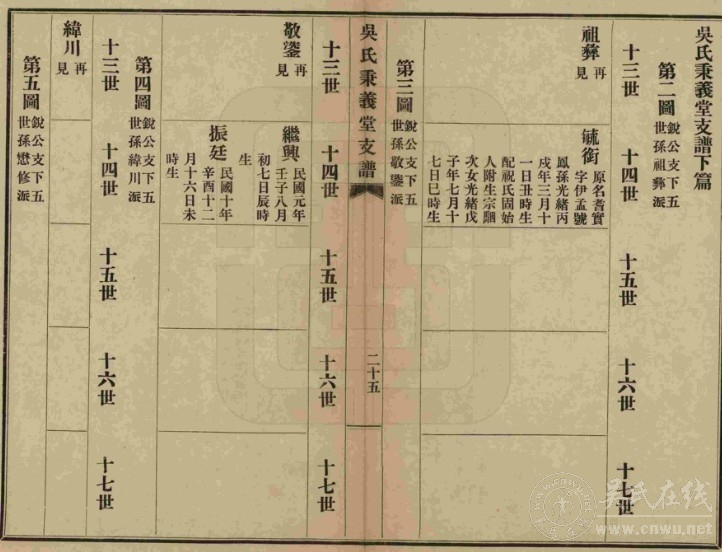 吳氏秉義堂支譜下篇
第二圖 銳公支下五世孫祖彝派
十三世 十四世 十五世 十六世 十七世
祖彝 再見
毓衛 原名耆實
字伊孟號
鳳孫光緒丙
戌年三月十
一日丑時生
配祝氏固始
人附生宗
次女光緒戊
子年七月十
七日巳時生
第三圖 銳公支下五世孫敬鋆派
吳氏秉義堂支譜
二十五
十三世 十四世 十五世 十六世 十七世
敬鋆 再見
繼興 民國元年
壬子八月
初七日辰時
生
振廷 民國十年
辛酉十二
月十六日未
時生
第四圖 銳公支下五世孫緯川派
十三世 十四世 十五世 十六世 十七世
緯川 再見
第五圖 銳公支下五世孫懋修派
吴氏在线
www.cnwu.net